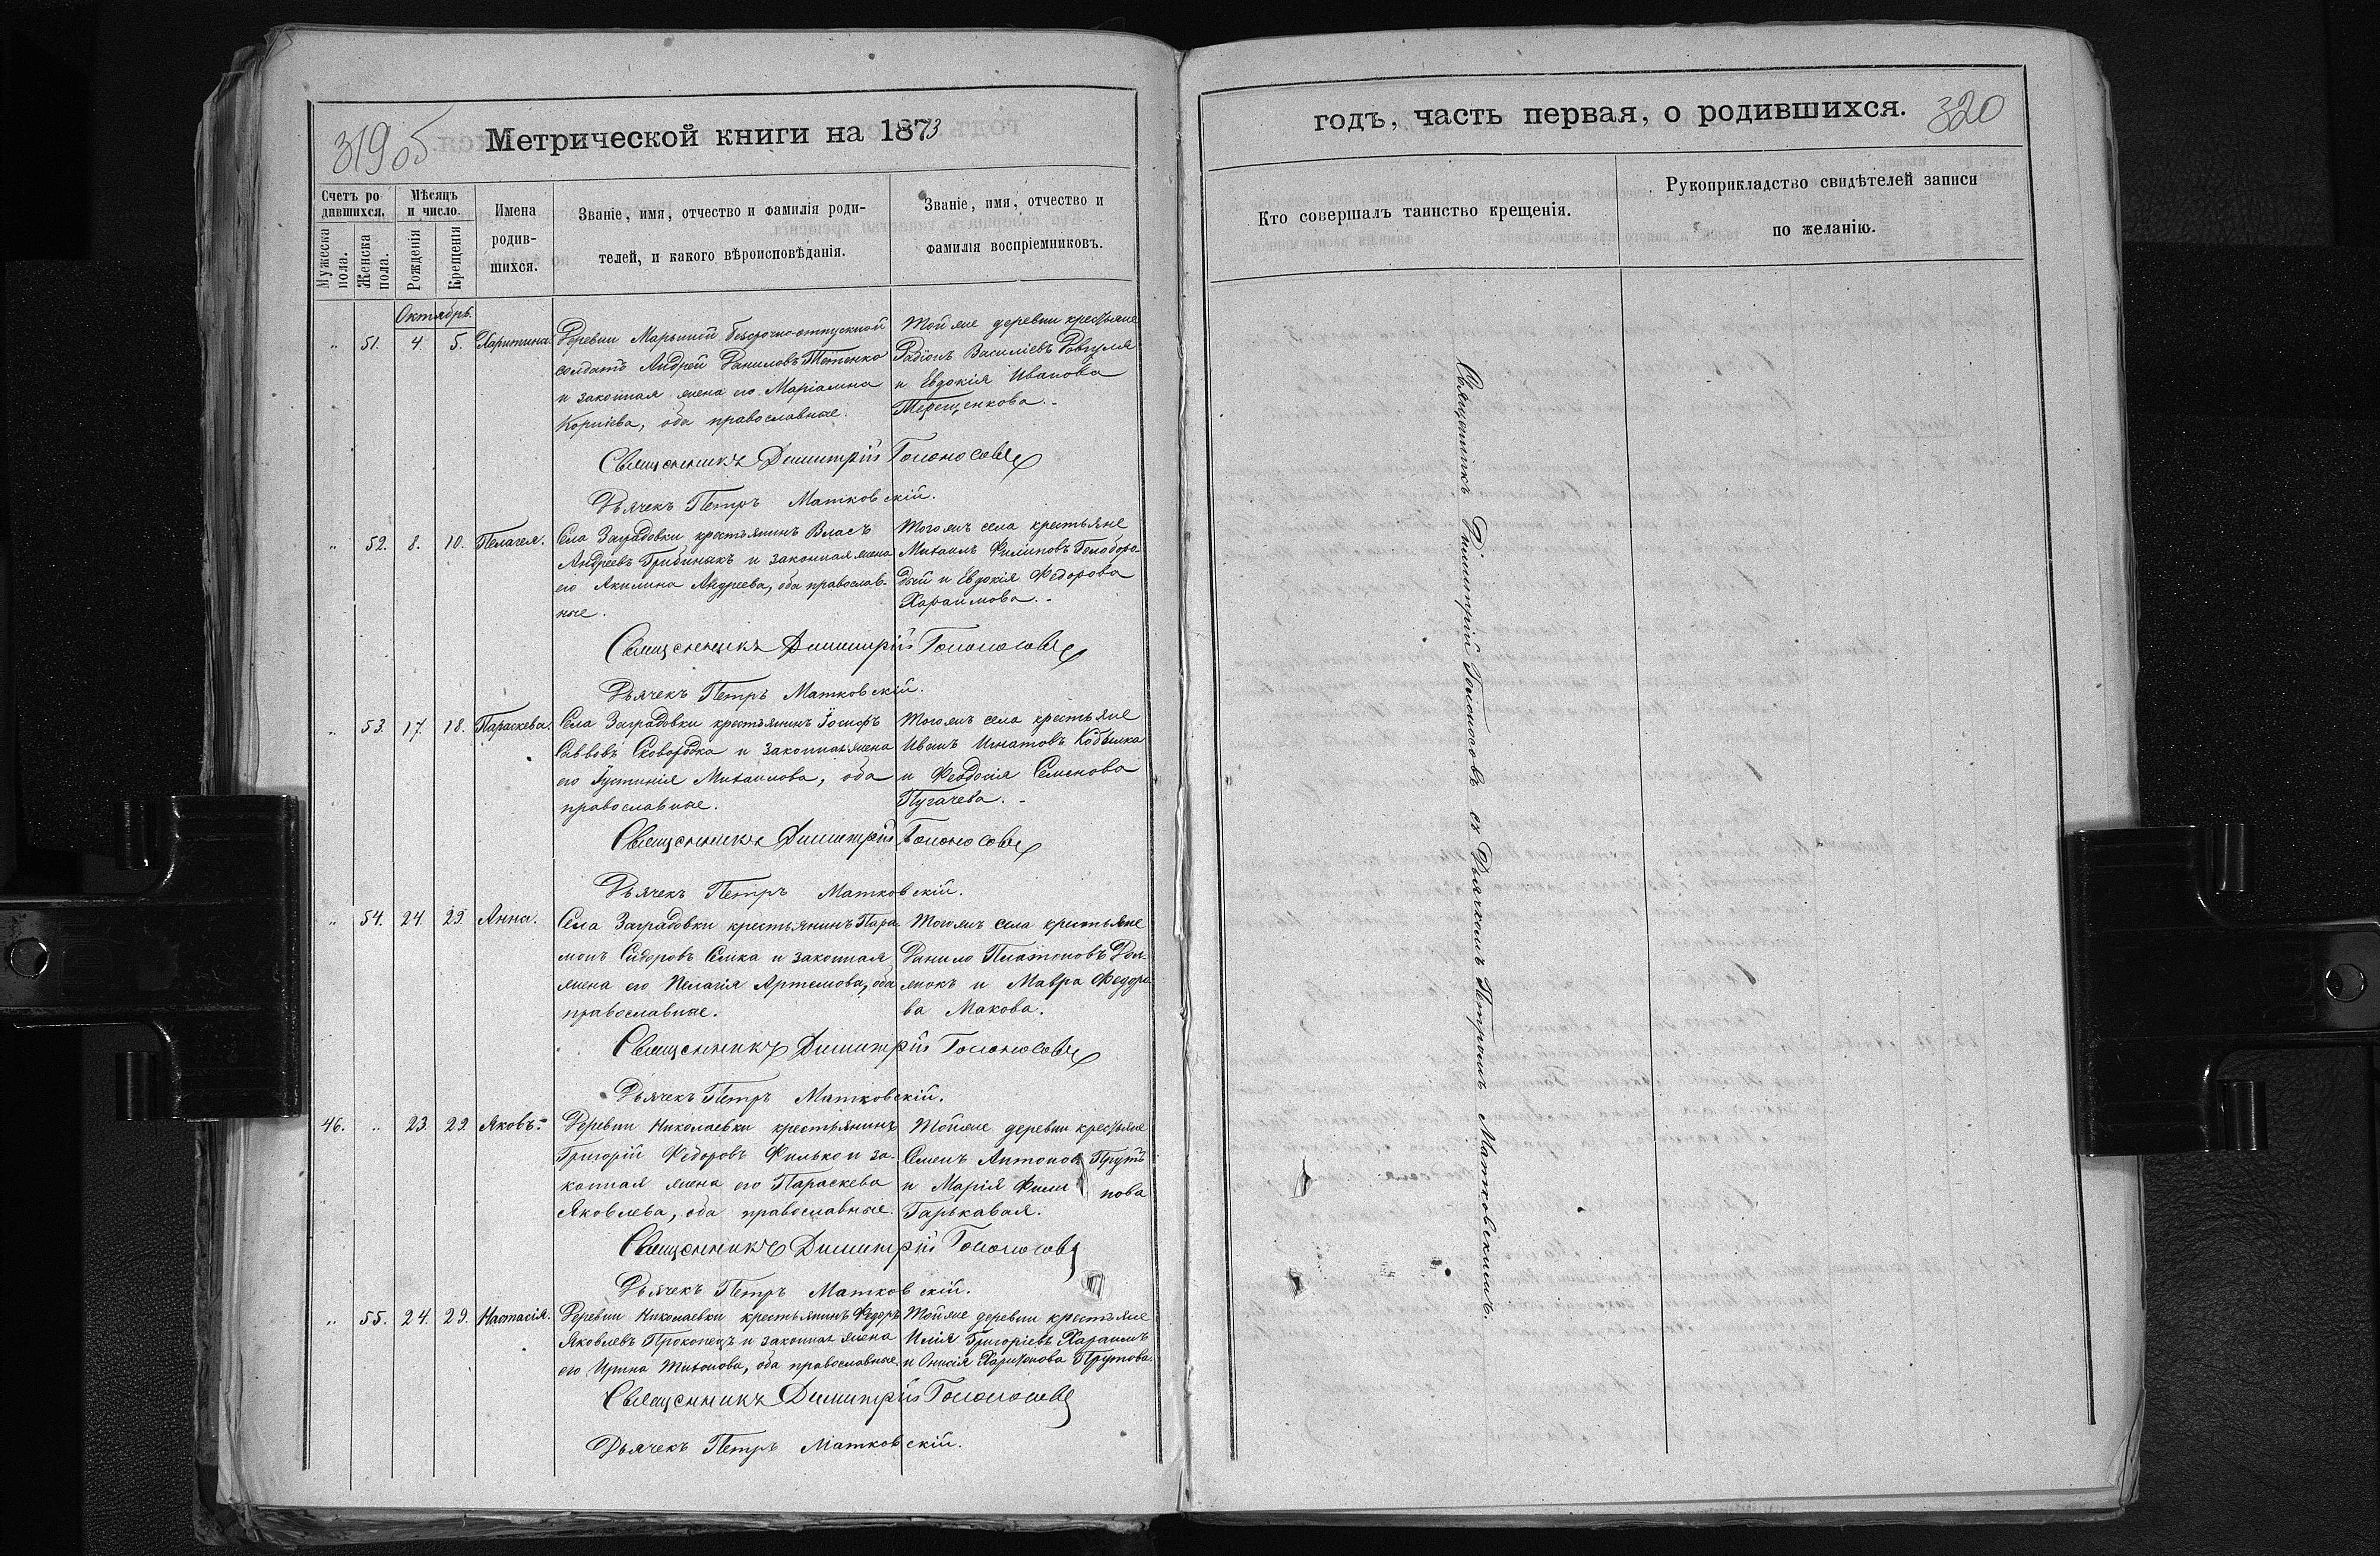 319 об
Метрической книги на 1873
Счетъ ро-
дившихся.
Мѣсяцъ
и число.
Мужеска
пола.
Женска
пола.
Рожденія
Крещенія
Имена
родив-
шихся.
Званіе, имя, отчество и фамилія роди-
телей, и какого вѣроисповѣданія.
Званіе, имя, отчество и
фамилія воспріемниковъ.
Октябрь.
„ 51. 4. 5. Харитина.
Деревни Марьиной безсрочно-отпускной
солдатъ Андрей Даниловъ Тетенко
и законная жена его Маріамна
Корніева, оба православные.
Той же деревни крестьяне
Радіонъ Василіевъ Ровгуля
и Евдокія Иванова
Терещенкова.-
Священникъ Димитрій Голоносовъ
Дьячекъ Петръ Матковскій.
„ 52. 8. 10. Пелагея.
Села Заградовки крестьянинъ Власъ
Андреевъ Грибиныкъ и законная жена
его Акилина Андреева, оба православ-
ные.
Того жъ села крестьяне
Михаилъ Филиповъ Голоборо-
дый и Евдокія Федорова
Хараимова.-
Священникъ Димитрій Голоносовъ
Дьячекъ Петръ Матковскій.
„ 53. 17. 18. Параскева.
Села Заградовки крестьянинъ Іосифъ
Саввовъ Сковородка и законная жена
его Іустинія Михаилова, оба
православные.
Того жъ села крестьяне
Иванъ Игнатовъ Кобылка
и Феодосія Семенова
Пугачева.-
Священникъ Димитрій Голоносовъ
Дьячекъ Петръ Матковскій.
„ 54. 24. 29. Анна.
Села Заградовки крестьянинъ Пара-
монъ Сидоровъ Семка и законная
жена его Пелагія Артемова, оба
православные.
Того жъ села крестьяне
Данило Платоновъ Дол-
жокъ и Мавра Федоро-
ва Макова.
Священникъ Димитрій Голоносовъ
Дьячекъ Петръ Матковскій.
46. „ 23. 29. Яковъ.
Деревни Николаевки крестьянинъ
Григорій Федоровъ Филько и за-
конная жена его Параскева
Яковлева, оба православные.
Той же деревни крестьяне
Семенъ Антоновъ Прутъ
и Марія Фили пова
Гарькавая.
Священникъ Димитрій Голоносовъ
Дьячекъ Петръ Матковскій.
„ 55. 24. 29. Настасія.
Деревни Николаевки крестьянинъ Федоръ
Яковлевъ Прокопецъ и законная жена
его Ирина Тихонова, оба православные.
Той же деревни крестьяне
Илія Григоріевъ Хараимъ
и Онисія Харитонова Прутова.
Священникъ Димитрій Голоносовъ
Дьячекъ Петръ Матковскій.
годъ, часть первая, о родившихся.
320
Кто совершалъ таинство крещенія.
Рукоприкладство свидѣтелей записи
по желанію.
Священникъ Димитрій Голоносовъ съ Дьячкомъ Петромъ Матковскимъ.